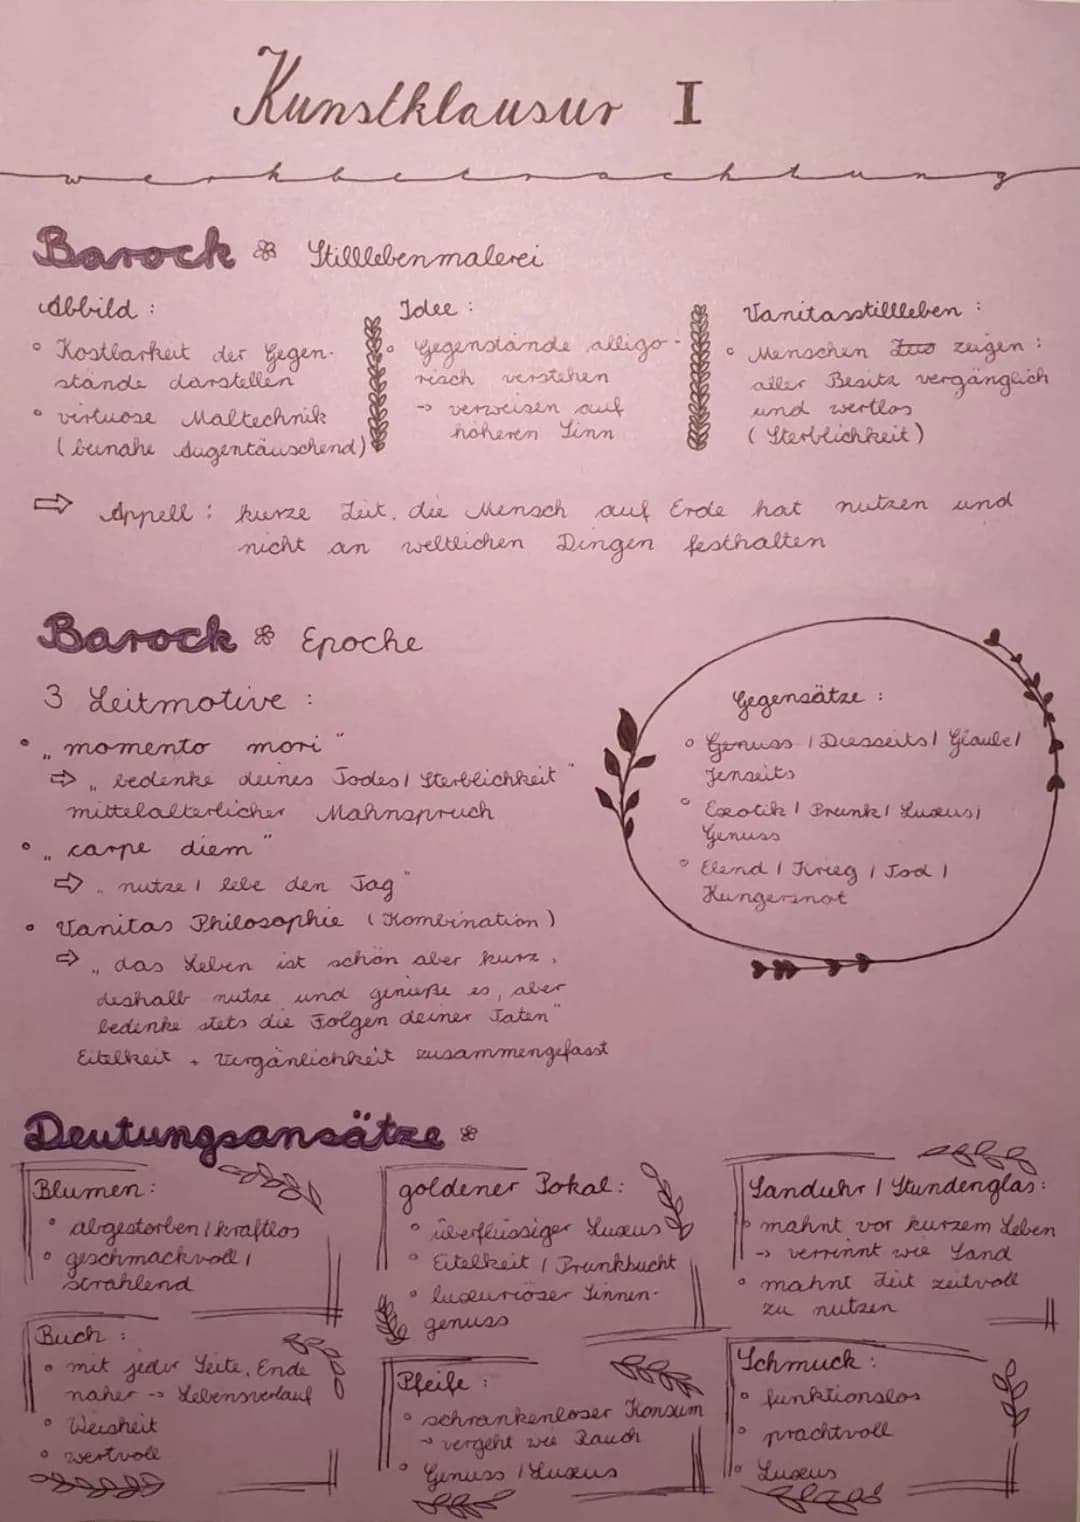 Kunstklausur I
werkbetrachtung
Barock Stilllebenmalerei
Abbild :
° Kostbarkeit der Gegen-
stände darstellen
° virtuose Maltechnik
( beinahe Augentäuschend)
Idee :
° Gegenstände alligo-
risch verstehen
→ verweisen auf
höheren Sinn
Vanitasstillleben :
° Menschen zeigen :
aller Besitz vergänglich
und wertlos
( Sterblichkeit )
⇨ Appell : kurze Zeit, die Mensch auf Erde hat nutzen und
nicht an weltlichen Dingen festhalten
Barock Epoche
3 Leitmotive :
° „ momento mori “
⇨ „ bedenke deines Todes / Sterblichkeit “
mittelalterlicher Mahnspruch
° „ carpe diem “
⇨ „ nutze / lebe den Tag “
° Vanitas Philosophie ( Kombination )
⇨ „ das Leben ist schön aber kurz,
deshalb nutze und genieße es, aber
bedenke stets die Folgen deiner Taten “
Eitelkeit + Vergänlichkeit zusammengefasst
Gegensätze :
° Genuss / Diesseits / Glaube /
Jenseits
° Exotik / Prunk / Luxus /
Genuss
° Elend / Krieg / Tod /
Hungersnot
Deutungsansätze
Blumen :
° abgestorben / kraftlos
° geschmackvoll /
strahlend
goldener Pokal :
° überflüssiger Luxus
° Eitelkeit / Prunksucht
° luxuriöser Sinnen-
genuss
Sanduhr / Stundenglas :
° mahnt vor kurzem Leben
→ verrinnt wie Sand
° mahnt Zeit zeitvoll
zu nutzen
Buch :
° mit jeder Seite, Ende
näher → Lebensverlauf
° Weisheit
° wertvoll
Pfeife :
° schrankenloser Konsum
→ vergeht wie Rauch
° Genuss / Luxus
Schmuck :
° funktionslos
° prachtvoll
° Luxus